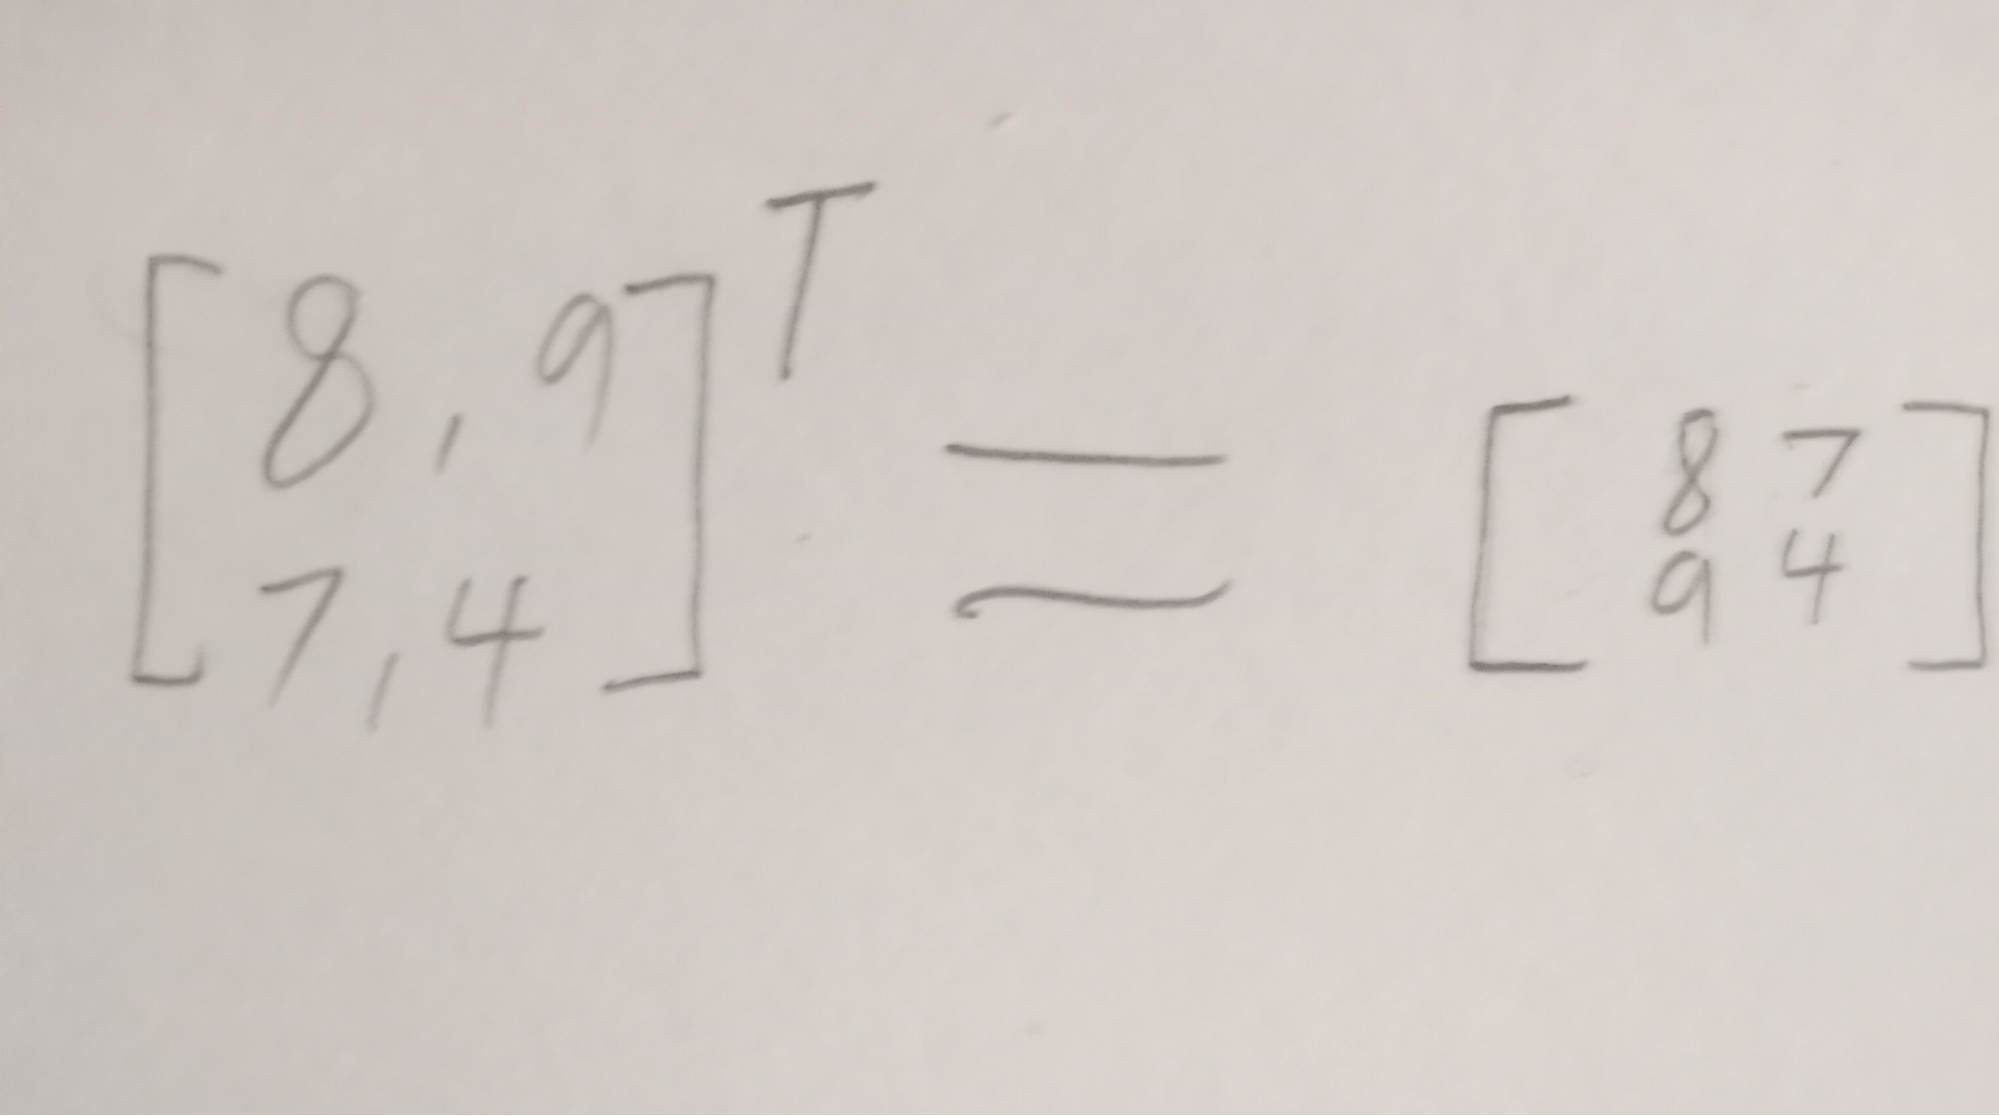 [8, 9
7, 4]^T = [8 7
9 4]